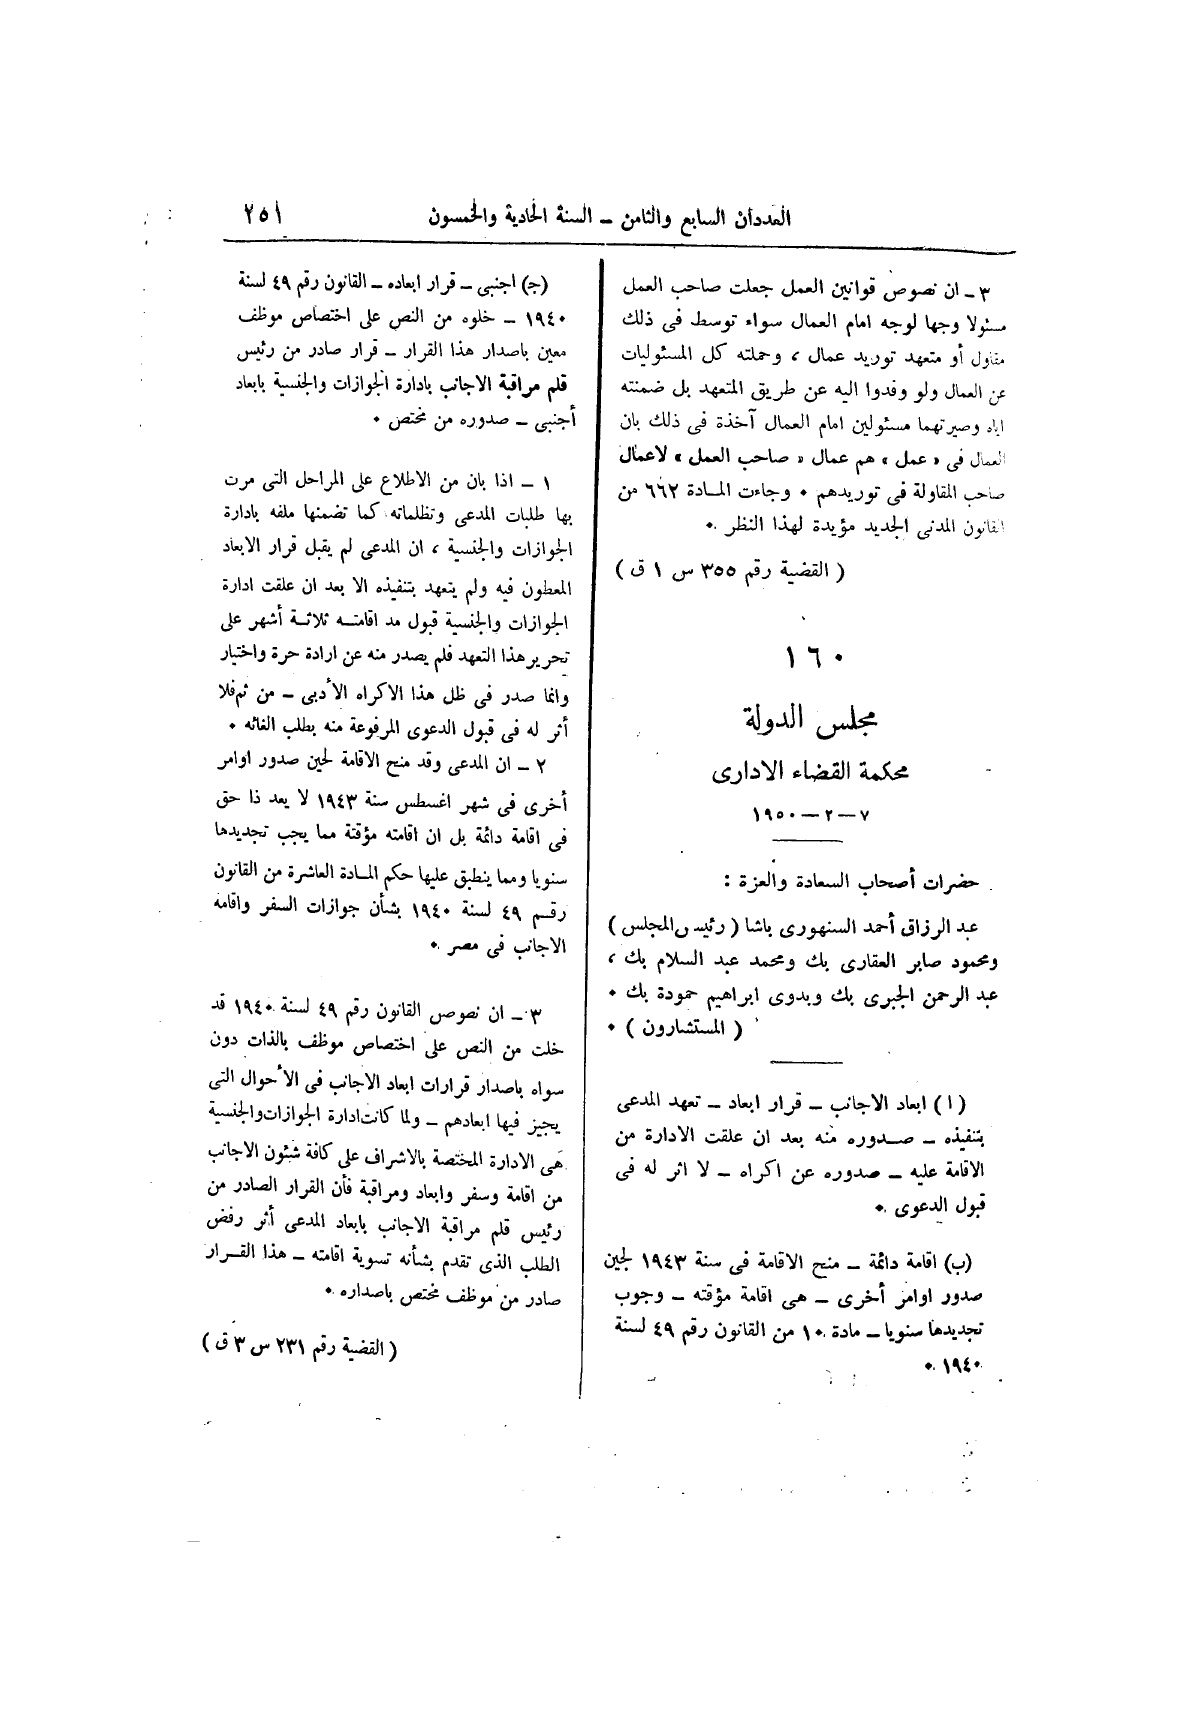 العددان السابع والثامن – السنة الحادية والخمسون
٢٥١
٣ – ان نصوص قوانين العمل جعلت صاحب العمل
مسئولا وجها لوجه امام العمال سواء توسط فى ذلك
مقاول أو متعهد توريد عمال ، وحملته كل المسئوليات
عن العمال ولو وفدوا اليه عن طريق المتعهد بل ضمنته
اياه وصيرتهما مسئولين امام العمال آخذة فى ذلك بان
العمال فى « عمل » هم عمال « صاحب العمل » لاعمال
صاحب المقاولة فى توريدهم • وجاءت المادة ٦٦٢ من
القانون المدنى الجديد مؤيدة لهذا النظر •
( القضية رقم ٣٥٥ س ١ ق )
١٦٠
مجلس الدولة
محكمة القضاء الادارى
٧ – ٢ – ١٩٥٠
حضرات أصحاب السعادة والعزة :
عبد الرزاق أحمد السنهورى باشا ( رئيس المجلس )
ومحمود صابر العقارى بك ومحمد عبد السلام بك ،
عبد الرحمن الجبرى بك وبدوى ابراهيم حمودة بك •
( المستشارون ) •
( ا ) ابعاد الاجانب – قرار ابعاد – تعهد المدعى
بتنفيذه – صدوره منه بعد ان علقت الادارة من
الاقامة عليه – صدوره عن اكراه – لا اثر له فى
قبول الدعوى •
(ب) اقامة دائمة – منح الاقامة فى سنة ١٩٤٣ لحين
صدور اوامر أخرى – هى اقامة مؤقته – وجوب
تجديدها سنويا – مادة ١٠ من القانون رقم ٤٩ لسنة
١٩٤٠ •
(ج) اجنبى – قرار ابعاده – القانون رقم ٤٩ لسنة
١٩٤٠ – خلوه من النص على اختصاص موظف
معين باصدار هذا القرار – قرار صادر من رئيس
قلم مراقبة الاجانب بادارة الجوازات والجنسية بابعاد
أجنبى – صدوره من مختص •
١ – اذا بان من الاطلاع على المراحل التى مرت
بها طلبات المدعى وتظلماته كما تضمنها ملفه بادارة
الجوازات والجنسية ، ان المدعى لم يقبل قرار الابعاد
المطعون فيه ولم يتعهد بتنفيذه الا بعد ان علقت ادارة
الجوازات والجنسية قبول مد اقامته ثلاثة أشهر على
تحرير هذا التعهد فلم يصدر منه عن ارادة حرة واختيار
وانما صدر فى ظل هذا الاكراه الأدبى – من ثم فلا
أثر له فى قبول الدعوى المرفوعة منه بطلب الغائه •
٢ – ان المدعى وقد منح الاقامة لحين صدور اوامر
أخرى فى شهر اغسطس سنة ١٩٤٣ لا يعد ذا حق
فى اقامة دائمة بل ان اقامته مؤقتة مما يجب تجديدها
سنويا ومما ينطبق عليها حكم المادة العاشرة من القانون
رقم ٤٩ لسنة ١٩٤٠ بشأن جوازات السفر واقامة
الاجانب فى مصر •
٣ – ان نصوص القانون رقم ٤٩ لسنة ١٩٤٠ قد
خلت من النص على اختصاص موظف بالذات دون
سواه باصدار قرارات ابعاد الاجانب فى الأحوال التى
يجيز فيها ابعادهم – ولما كانت ادارة الجوازات والجنسية
هى الادارة المختصة بالاشراف على كافة شئون الاجانب
من اقامة وسفر وابعاد ومراقبة فأن القرار الصادر من
رئيس قلم مراقبة الاجانب بابعاد المدعى أثر رفض
الطلب الذى تقدم بشأنه تسوية اقامته – هذا القرار
صادر من موظف مختص باصداره •
( القضية رقم ٢٣١ س ٣ ق )